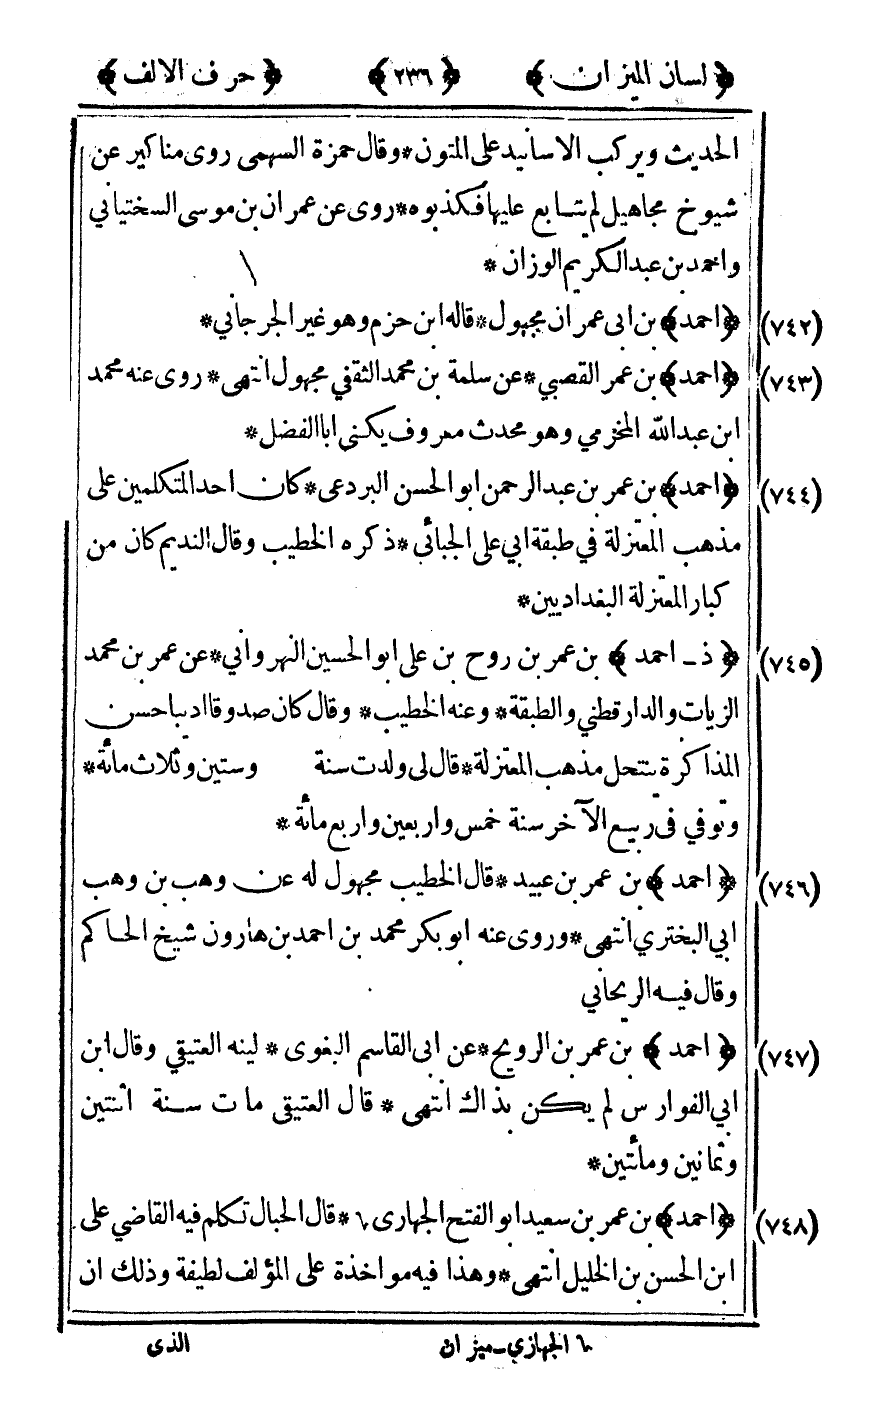 ﴿ لسان الميزان ﴾ ﴿ ٢٣٦ ﴾ ﴿ حرف الالف ﴾
الحديث ويركب الاسانيد على المتون * وقال حمزة السهمى روى مناكير عن
شيوخ مجاهيل لم يتابع عليها فكذبوه * روى عن عمران بن موسى السختياني
واحمد بن عبد الكريم الوزان *
(٧٤٢) ﴿ احمد ﴾ بن ابى عمران مجهول * قاله ابن حزم وهو غير الجرجاني *
(٧٤٣) ﴿ احمد ﴾ بن عمر القصبي * عن سلمة بن محمد الثقفي مجهول انتهى * روى عنه محمد
ابن عبد الله المخرمي وهو محدث معروف يكنى ابا الفضل *
(٧٤٤) ﴿ احمد ﴾ بن عمر بن عبد الرحمن ابو الحسن البردعى * كان احد المتكلمين على
مذهب المعتزلة في طبقة ابي على الجبائي * ذكره الخطيب وقال النديم كان من
كبار المعتزلة البغداديين *
(٧٤٥) ﴿ ذ ـ احمد ﴾ بن عمر بن روح بن على ابو الحسين النهرواني * عن عمر بن محمد
الزيات والدارقطني والطبقة * وعنه الخطيب * وقال كان صدوقا اديبا حسن
المذاكرة ينتحل مذهب المعتزلة * قال لى ولدت سنة وستين وثلاث مائة *
وتوفي فى ربيع الآخر سنة خمس واربعين واربع مائة *
(٧٤٦) ﴿ احمد ﴾ بن عمر بن عبيد * قال الخطيب مجهول له عن وهب بن وهب
ابي البختري انتهى * وروى عنه ابو بكر محمد بن احمد بن هارون شيخ الحاكم
وقال فيه الريحاني
(٧٤٧) ﴿ احمد ﴾ بن عمر بن الرويح * عن ابى القاسم البغوى * لينه العتيقي وقال ابن
ابي الفوارس لم يكن بذاك انتهى * قال العتيقى مات سنة اثنتين
وثمانين ومائتين *
(٧٤٨) ﴿ احمد ﴾ بن عمر بن سعيد ابو الفتح الجهارى ١ * قال الحبال تكلم فيه القاضي على
ابن الحسن بن الخليل انتهى * وهذا فيه مواخذة على المؤلف لطيفة وذلك ان
١ الجهازي ـ ميزان
الذى